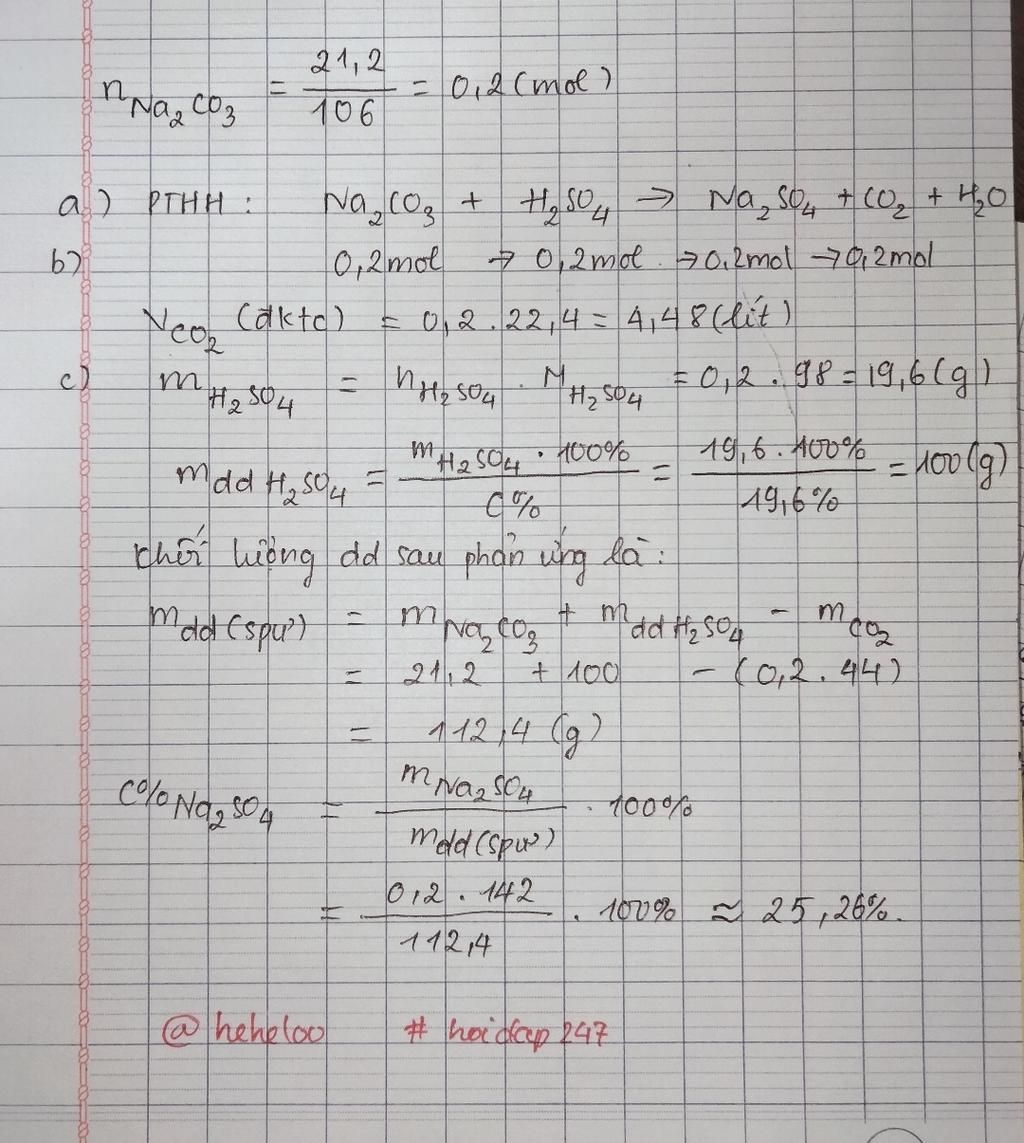 n Na₂CO₃ = 21,2/106 = 0,2 (mol)
a) PTHH : Na₂CO₃ + H₂SO₄ → Na₂SO₄ + CO₂ + H₂O
b) 0,2mol → 0,2mol → 0,2mol → 0,2mol
V CO₂ (đktc) = 0,2 . 22,4 = 4,48 (lít)
c) m H₂SO₄ = n H₂SO₄ . M H₂SO₄ = 0,2 . 98 = 19,6 (g)
m dd H₂SO₄ = m H₂SO₄ . 100% / C% = 19,6 . 100% / 19,6% = 100 (g)
Khối lượng dd sau phản ứng là :
m dd (spư) = m Na₂CO₃ + m dd H₂SO₄ - m CO₂
= 21,2 + 100 - (0,2 . 44)
= 112,4 (g)
C% Na₂SO₄ = m Na₂SO₄ / m dd (spư) . 100%
= 0,2 . 142 / 112,4 . 100% ≈ 25,26%.
@heheloo # hoidap247